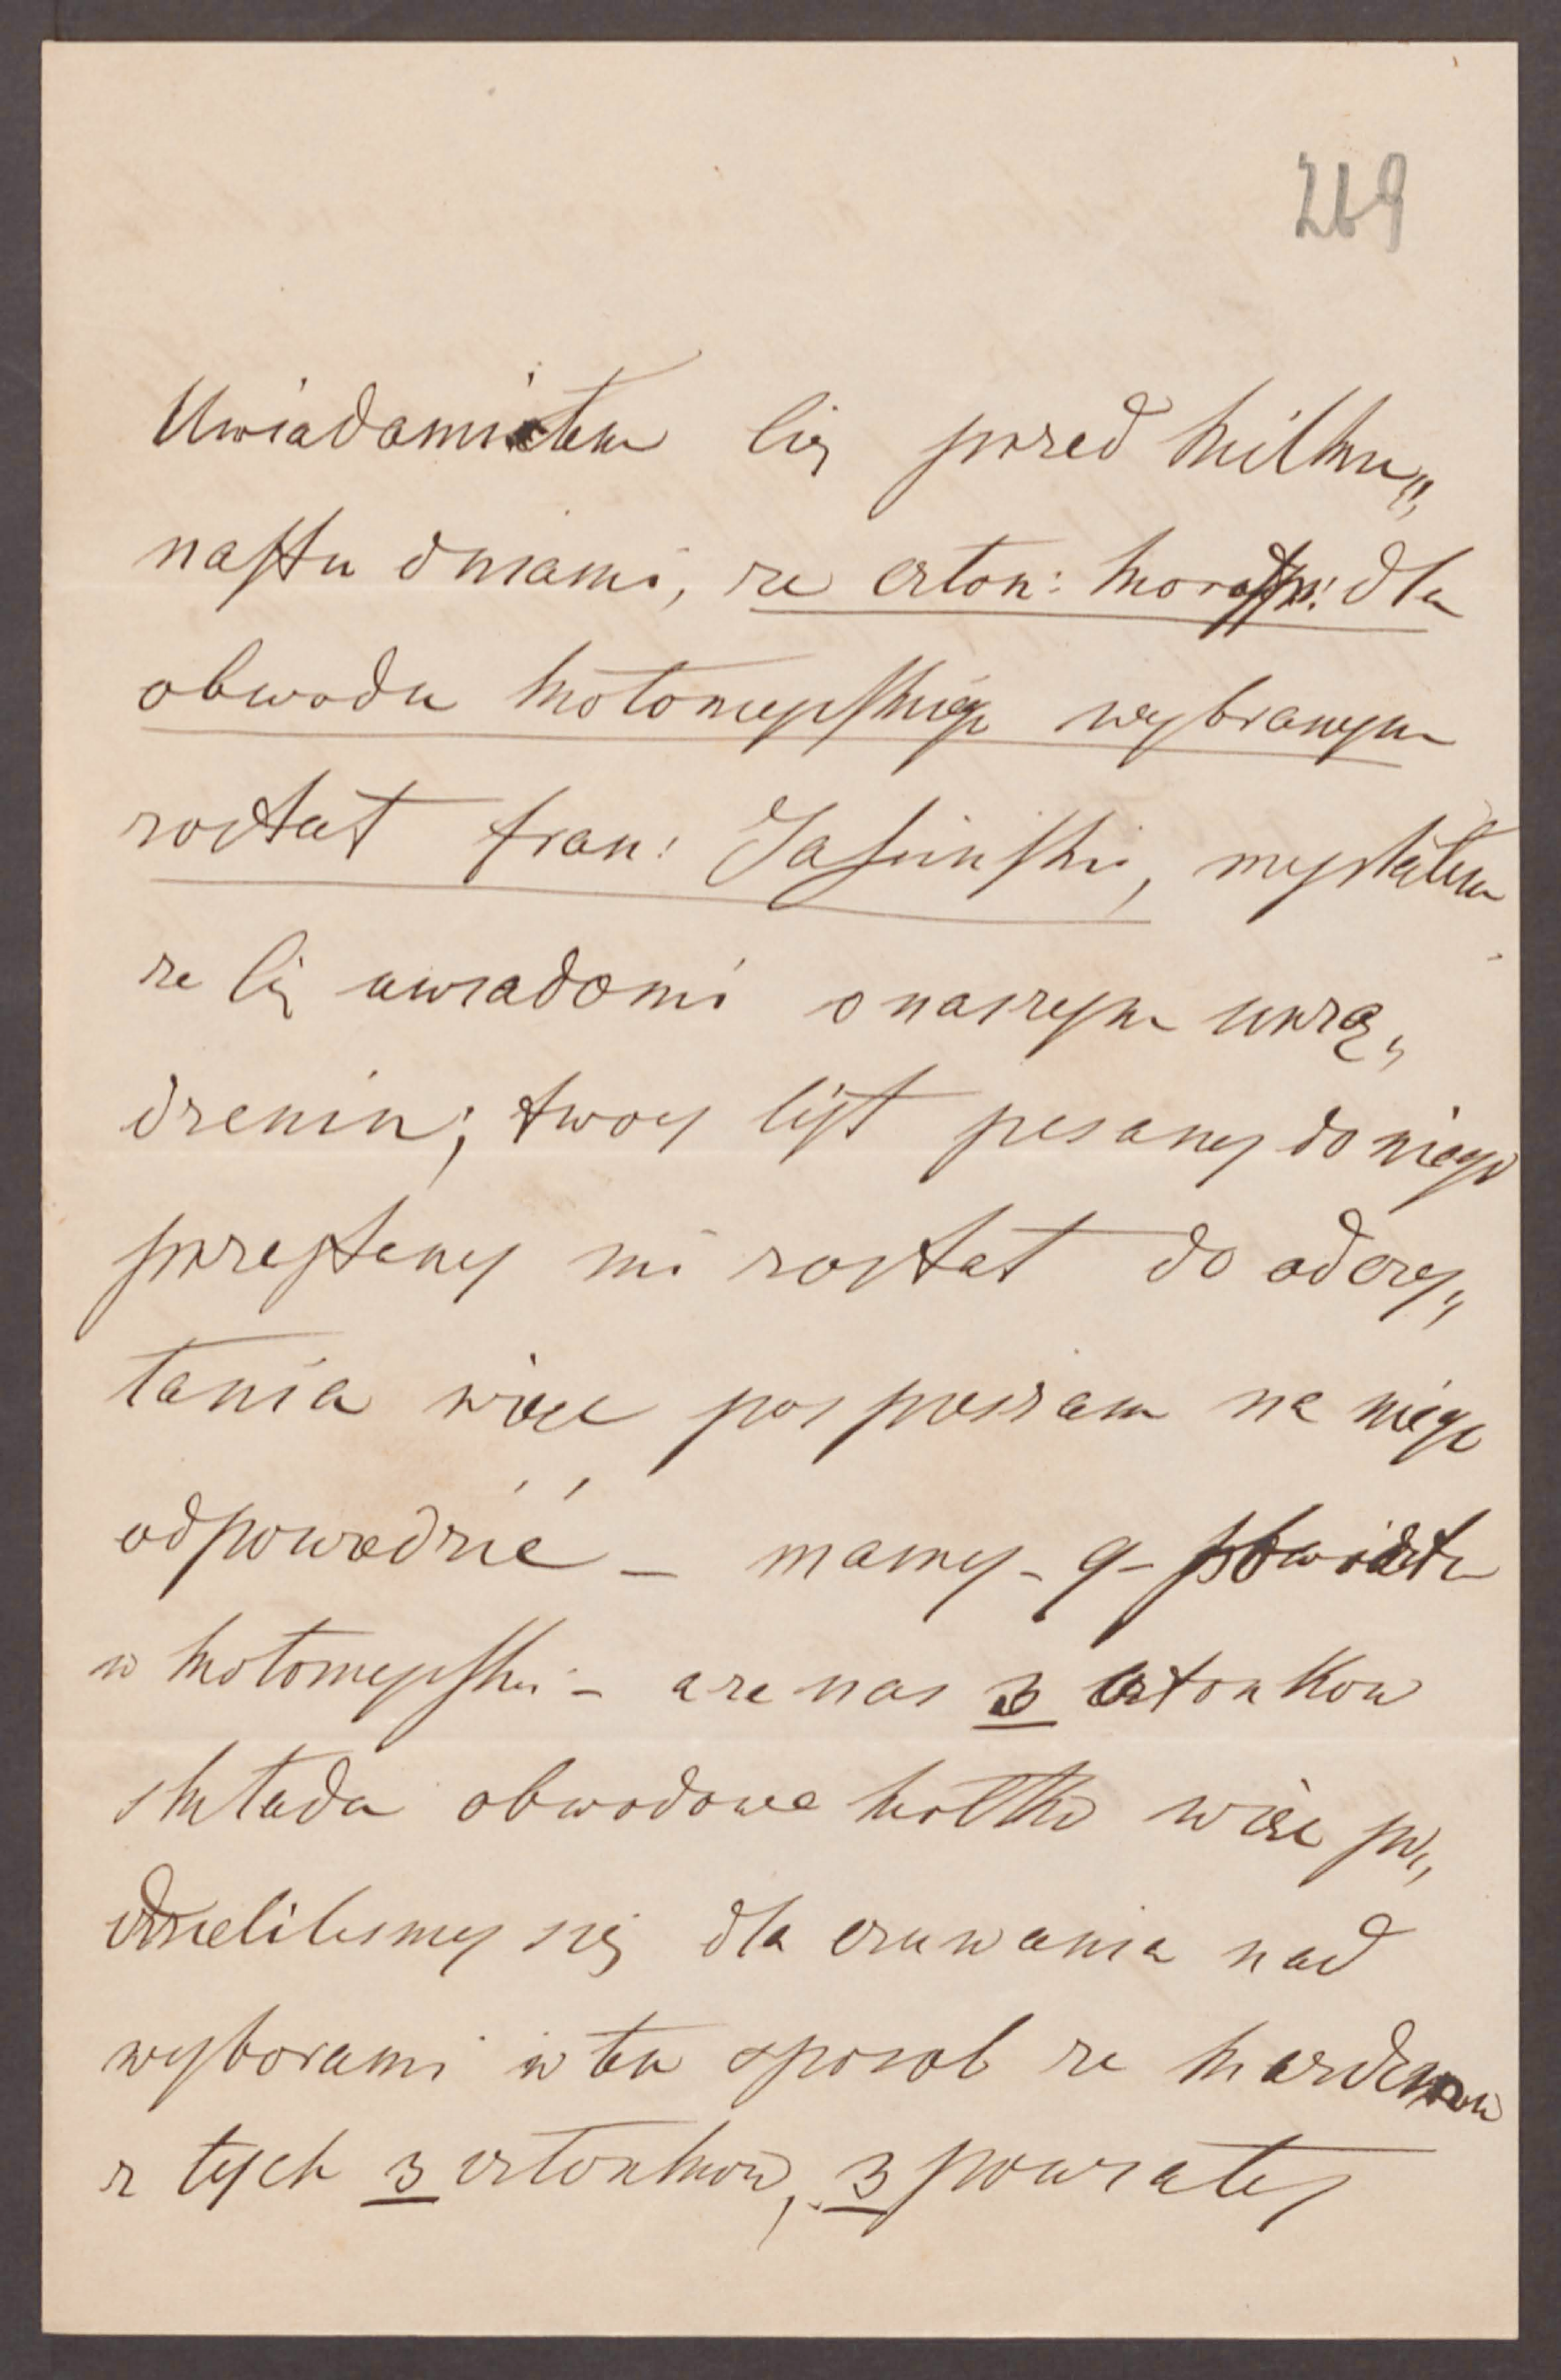 269
Uwiadamiałem Cię przed kilku„
nastu dniami, ze człon: koresp: dla
obwodu kołomyjskiego wybranym
został fran: Jasinski, myslałem
ze Cię uwiadomi o naszym urzą„
dzeniu; twoy list pisany do niego
przesłany mi został do odczy„
tania więc pospieszam na niego
odpowiedzić – mamy – 9 –
w kołomyjskim – a ze nas 3 członkow
składa obwodowe kółko więc po„
dzielilismy się dla czuwania nad
wyborami w ten sposob ze kazdemu
z tych 3 członkow, 3 powiaty